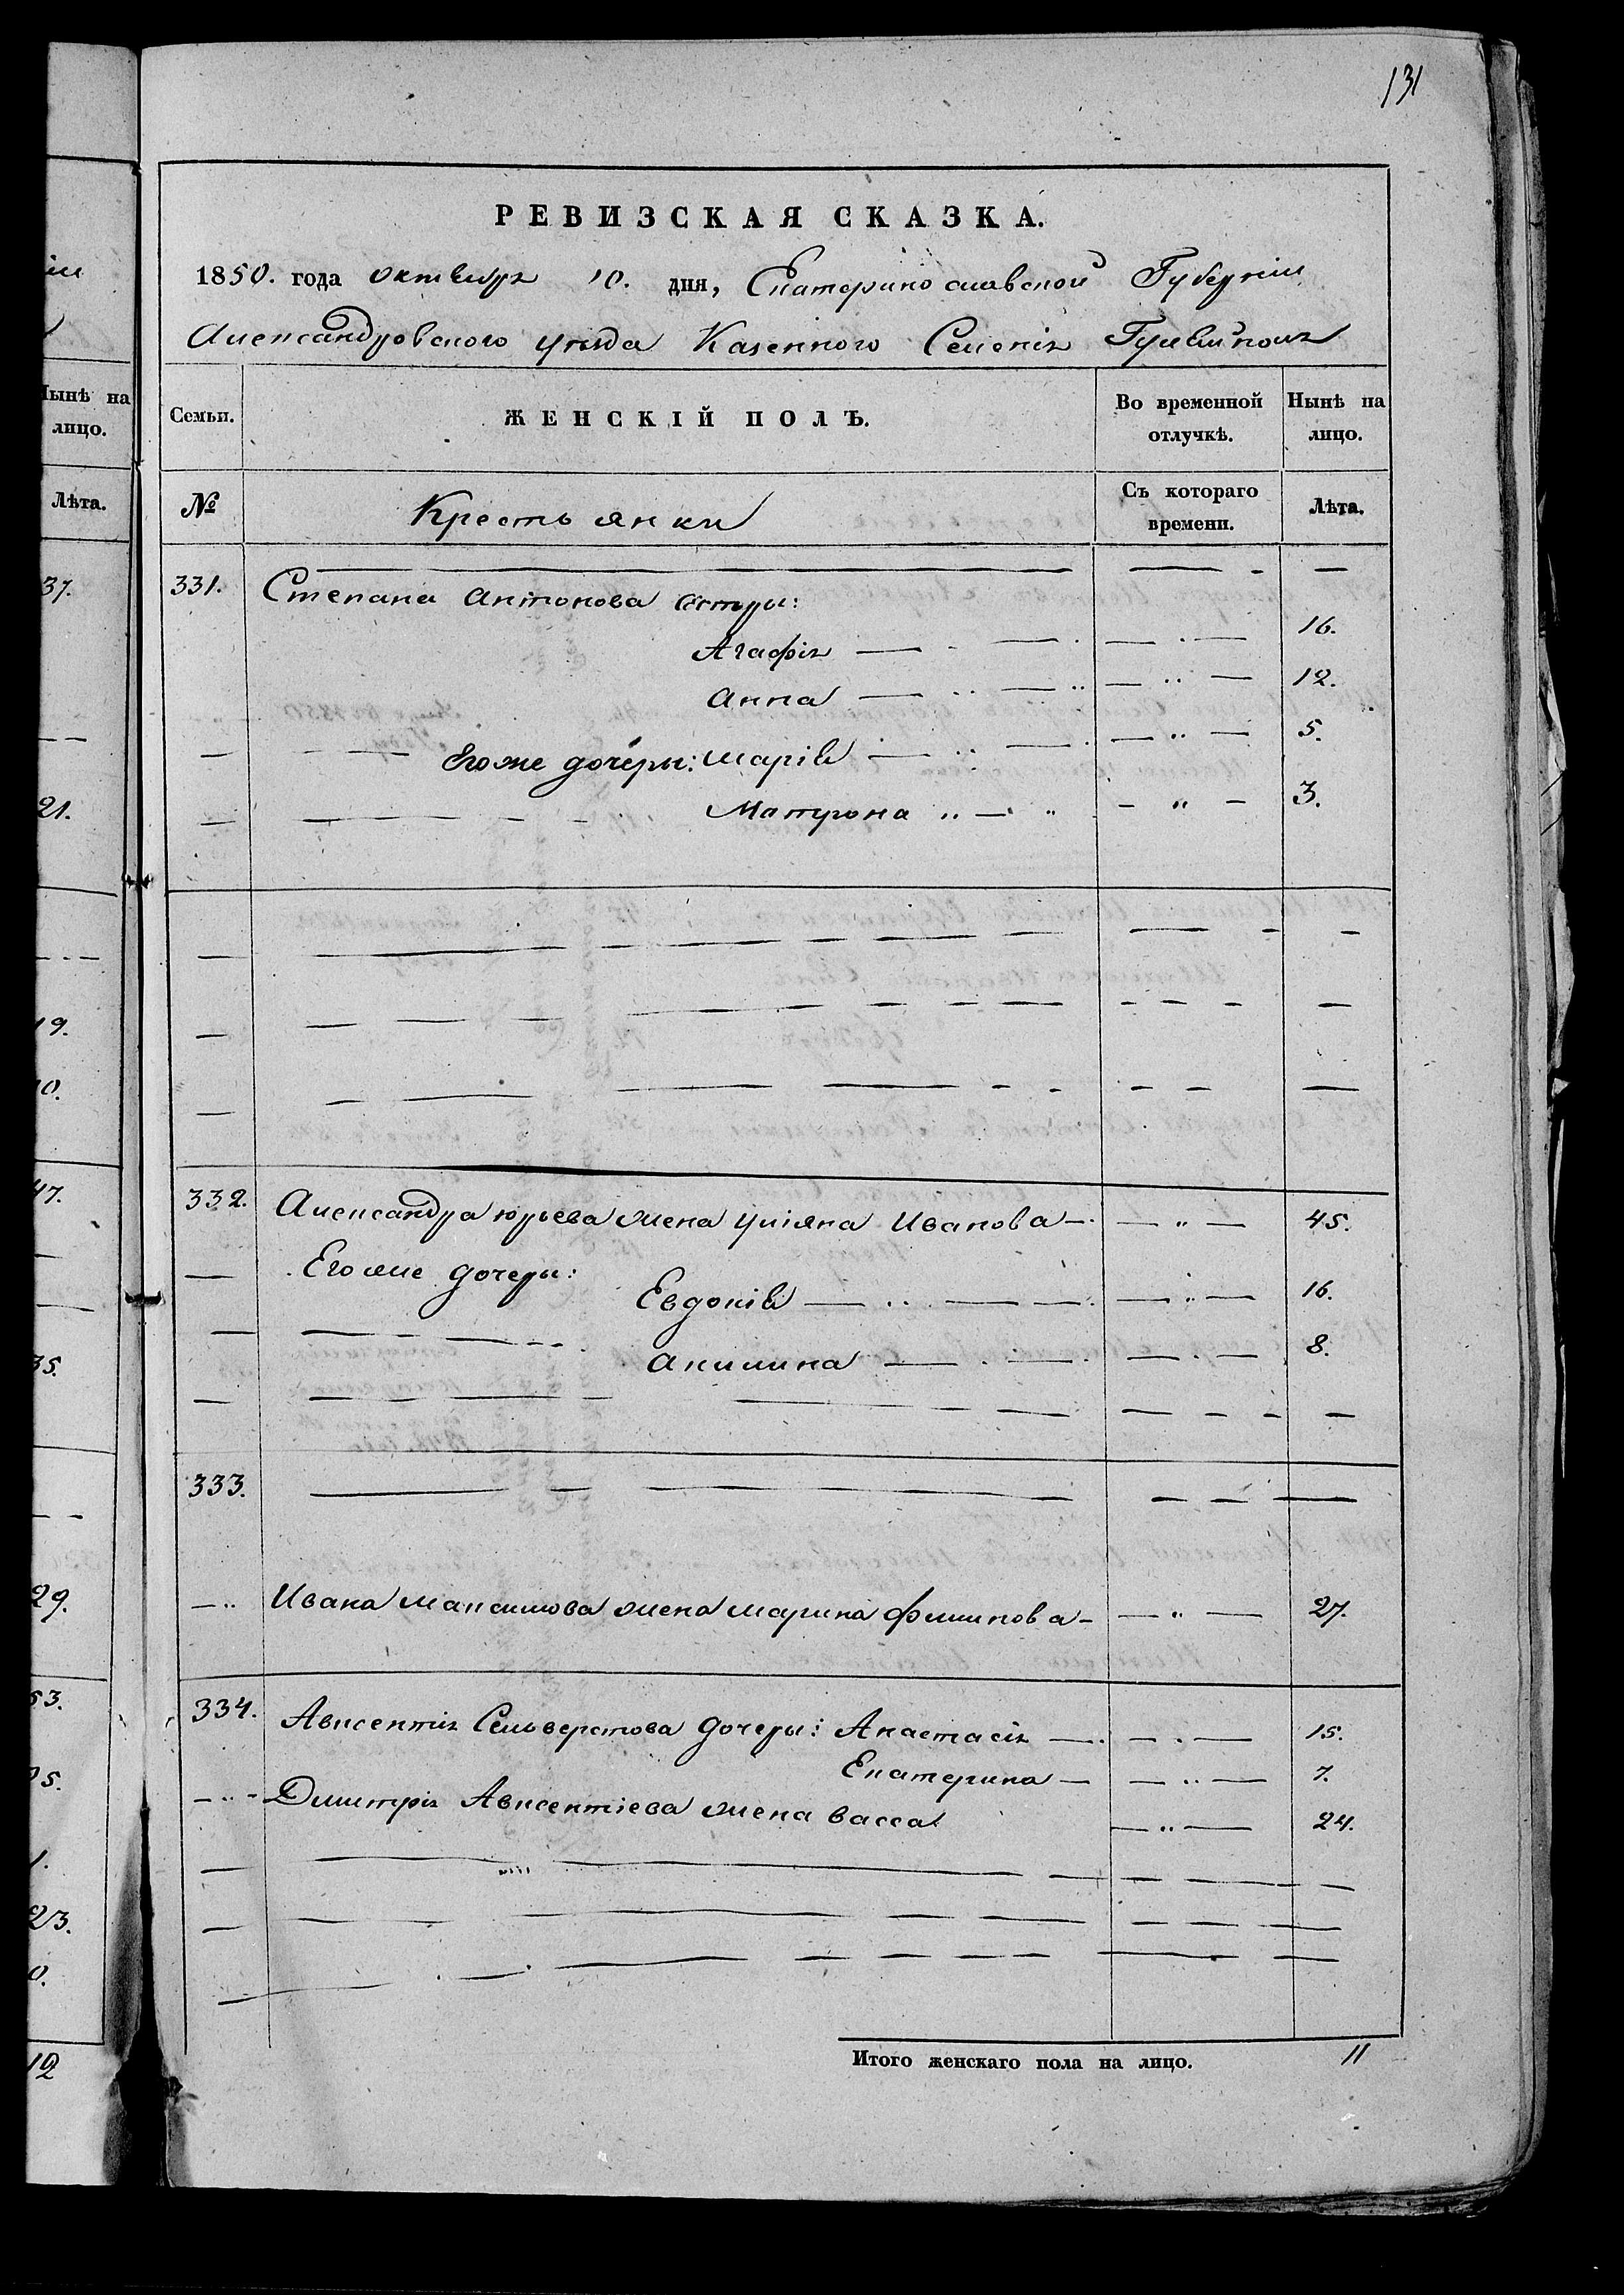 131
РЕВИЗСКАЯ СКАЗКА.
1850. года октября 10. дня, Екатеринославской Губерніи
Александровского уезда Казенного Селенія Гуляйполя
Семьи. ЖЕНСКІЙ ПОЛЪ. Во временной отлучкѣ. Нынѣ на лицо.
№ Крестьянки Съ котораго времени. Лѣта.
331. Степана Антонова сестры:
Агафія 16.
Анна 12.
Егоже дочери: Марія 5.
Матрона 3.
332. Александра Юрьева жена Уліяна Иванова 45.
Егоже дочери:
Евдокія 16.
Акилина 8.
333.
Ивана Максимова жена Марина Филипова 27.
334. Авксентія Сельверстова дочери: Анастасія 15.
Екатерина 7.
Димитрія Авксентіева жена Васса 24.
Итого женскаго пола на лицо. 11
ынѣ на
лицо.
Лѣта.
37.
21.
19.
0.
47.
35.
29.
53.
5.
1.
23.
0.
12